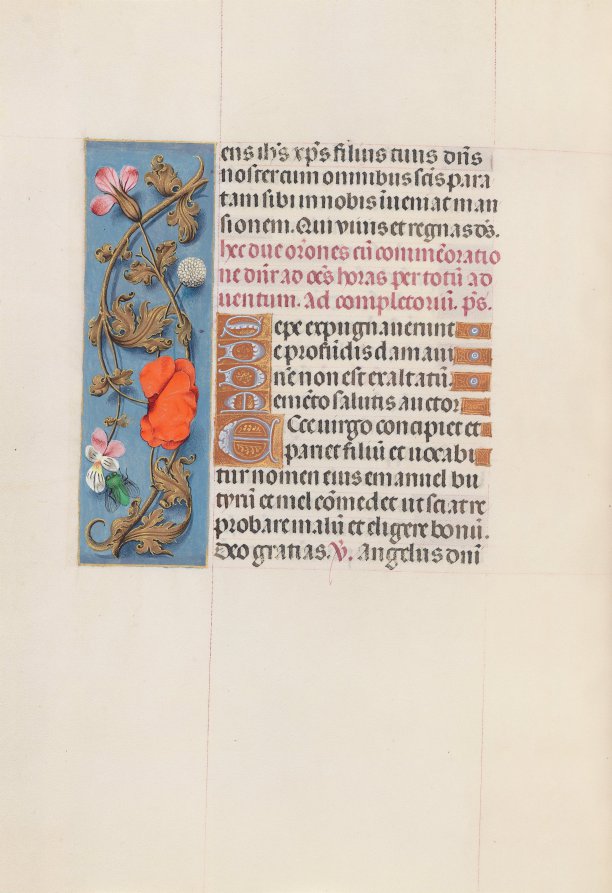 ens ih̄s xp̄s filius tuus dn̄s
noster cum omnibus sc̄is para
tam sibi in nobis inueniat man
sionem. Qui viuis et regnas ds̄.
hec due or̄ones cū commēoratio
ne dn̄r ad oēs horas per totū ad
uentum. Ad completoriū. ps̄.
Sepe expugnauerunt
De profūdis clamaui
Dn̄e non est exaltatū
Memēto salutis auctor
Ecce uirgo concipiet et
pariet filiū et uocabi
tur nomen eius emanuel bu
tyrū et mel cōmedet ut sciat re
probare malū et eligere bonū.
Deo gratias. V̄. Angelus dn̄i